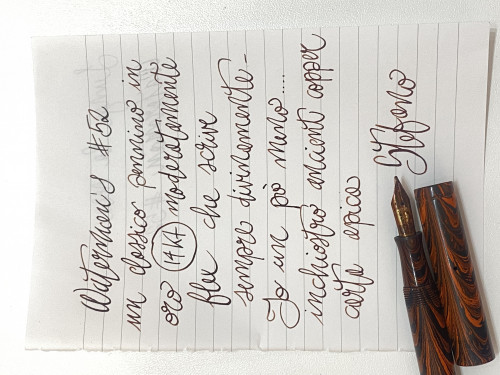 Waterman's #52
un classico pennino in
oro 14kt moderatamente
flex che scrive
sempre divinamente -
Io un pò meno....
inchiostro ancient copper
carta apica
Stefano